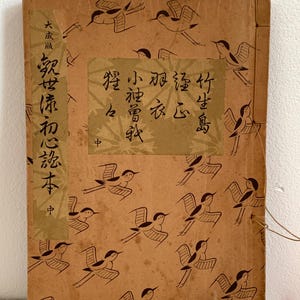 竹生島
経正
羽衣
小袖曽我
猩々
中
大成版
観世流初心謡本
中